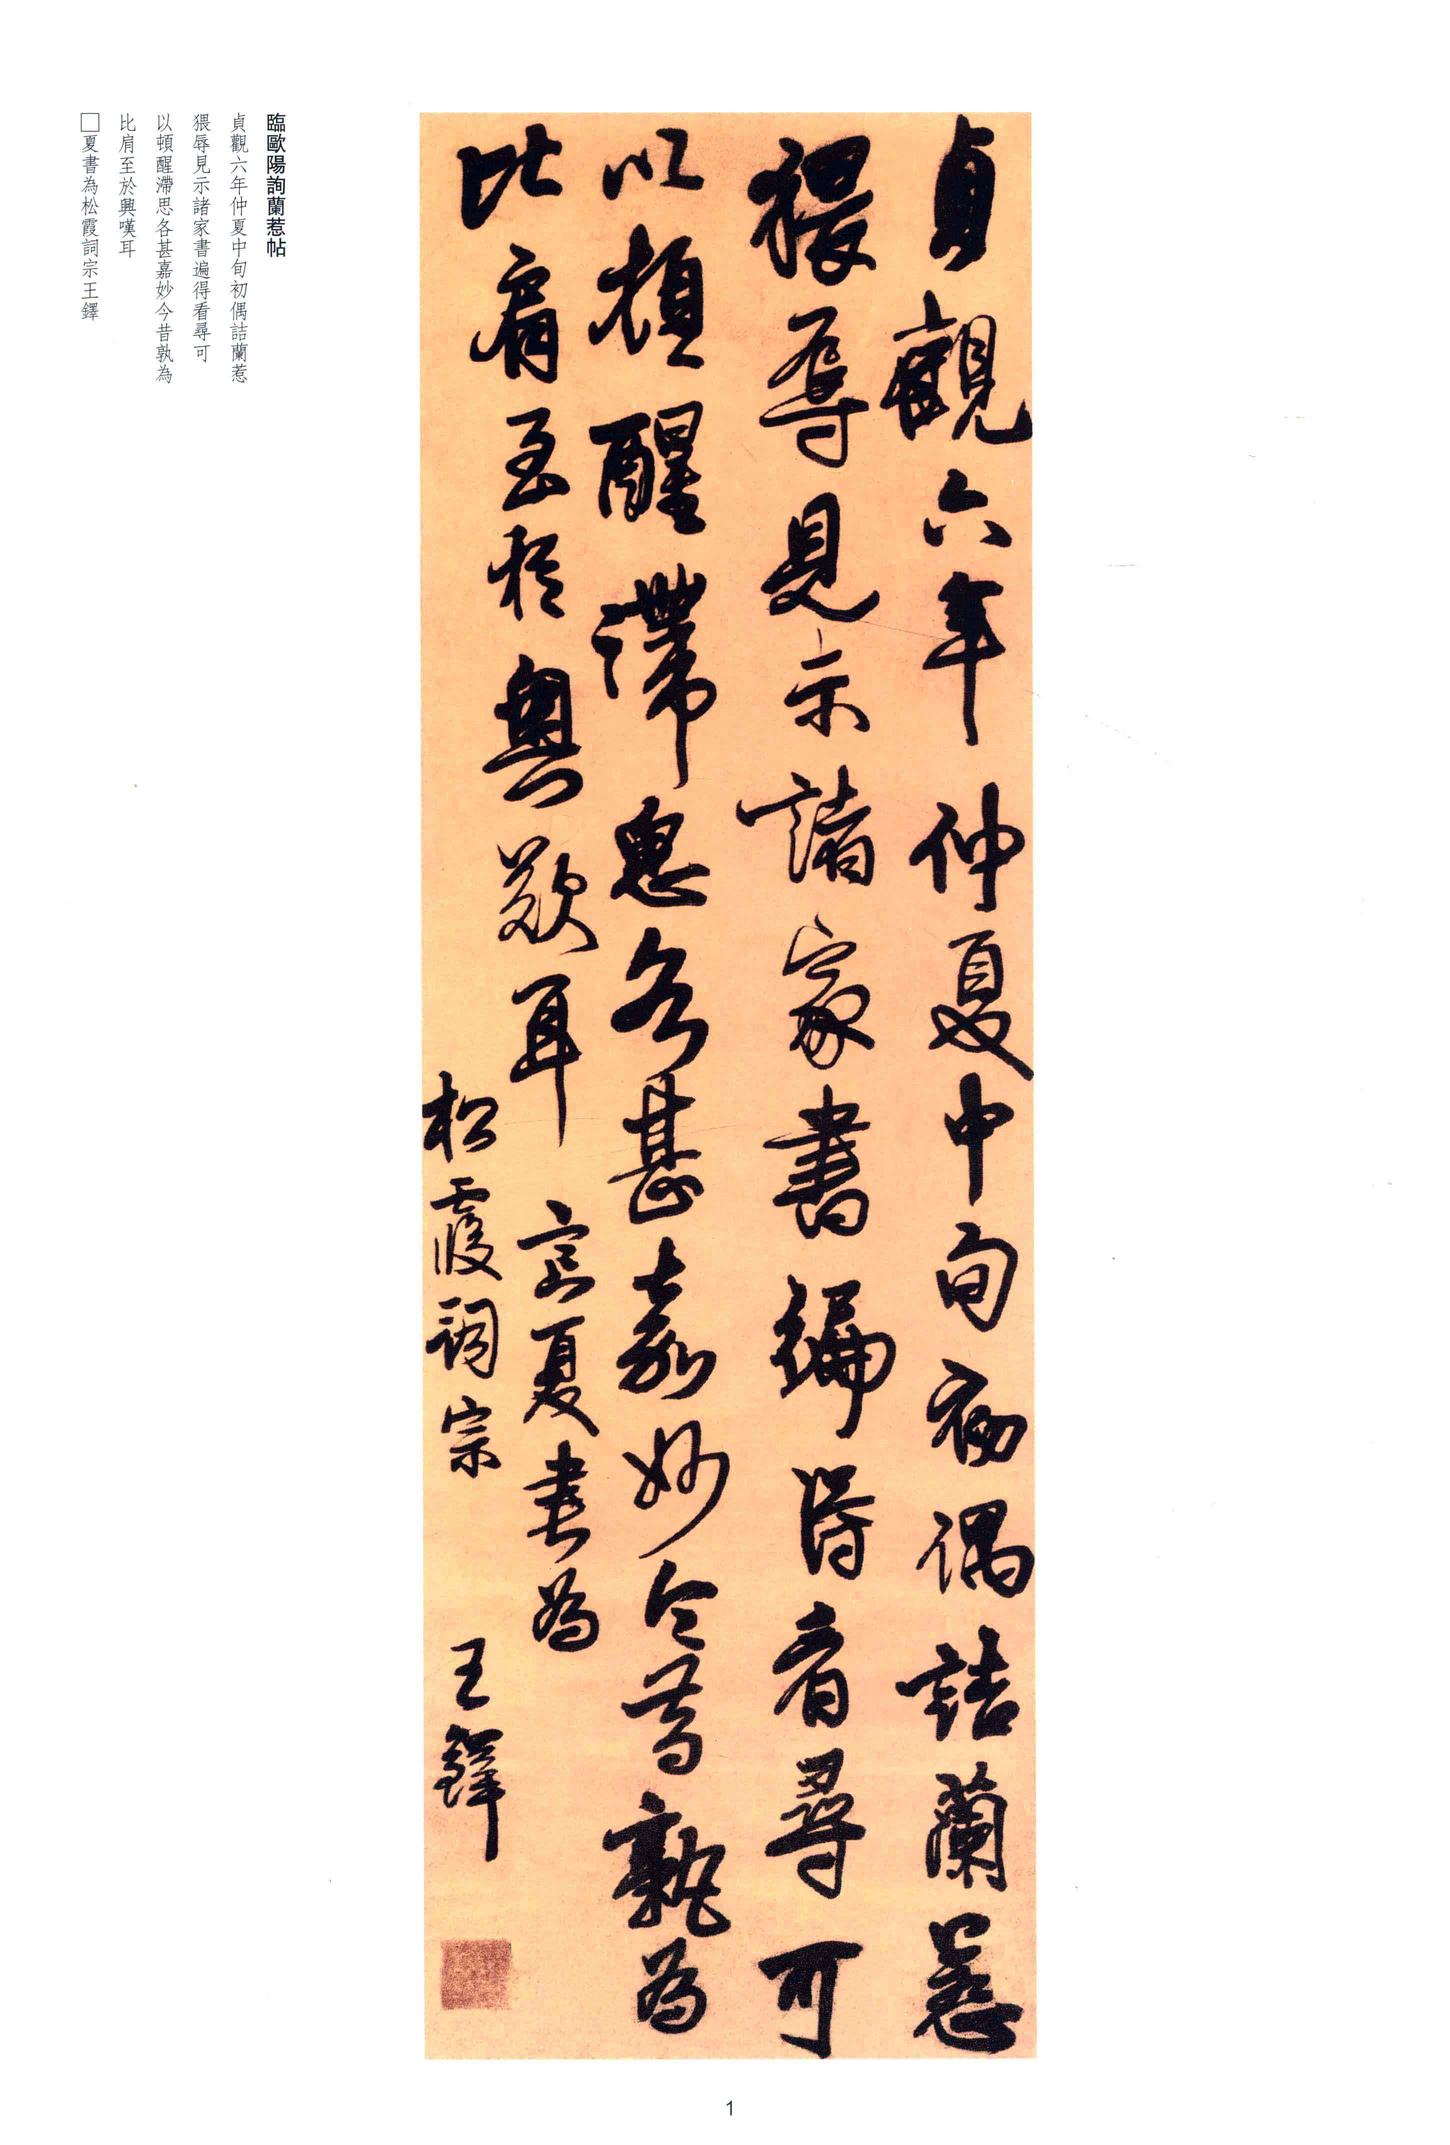 貞觀六年仲夏中旬初偶詰蘭惹
猥辱見示諸家書遍得看尋可
以頓醒滯思各甚嘉妙今昔孰為
比肩至於興嘆耳
夏書為
松霞詞宗
王鐸
臨歐陽詢蘭惹帖
貞觀六年仲夏中旬初偶詰蘭惹
猥辱見示諸家書遍得看尋可
以頓醒滯思各甚嘉妙今昔孰為
比肩至於興嘆耳
□夏書為松霞詞宗王鐸
1